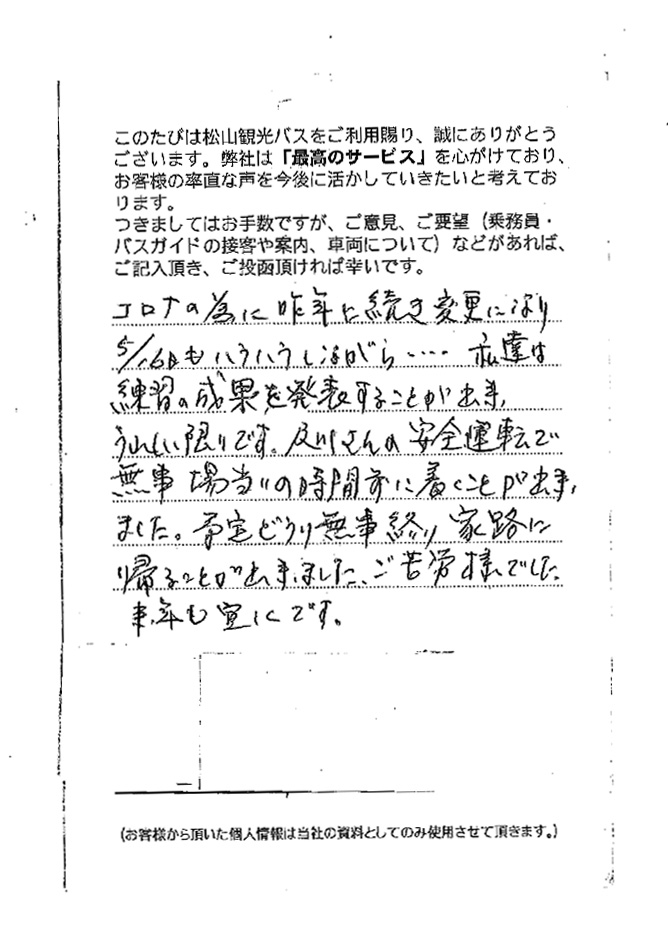 このたびは松山観光バスをご利用賜り、誠にありがとう
ございます。弊社は「最高のサービス」を心がけており、
お客様の率直な声を今後に活かしていきたいと考えてお
ります。
つきましてはお手数ですが、ご意見、ご要望（乗務員・
バスガイドの接客や案内、車両について）などがあれば、
ご記入頂き、ご投函頂ければ幸いです。
コロナの為に昨年に続き変更になり
5/16日もハラハラしながら…. 私達は
練習の成果を発表することが出来、
うれしい限りです。及川さんの安全運転で
無事場当りの時間前に着くことが出来
ました。予定どうり無事終り家路に
帰ることが出来ました、ご苦労様でした
来年も宜しくです。
(お客様から頂いた個人情報は当社の資料としてのみ使用させて頂きます。)